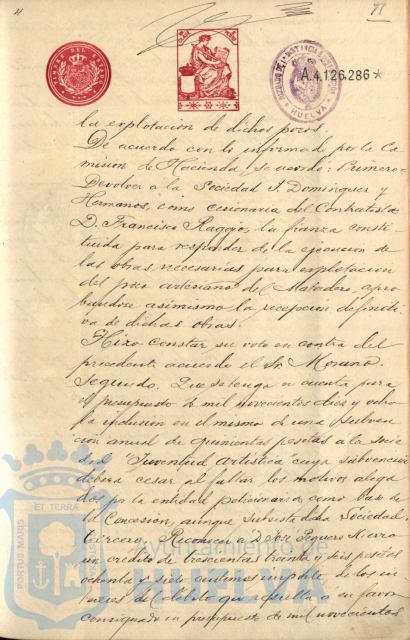 11
A.4.126.286*
HUELVA
la explotación de dichos pozos.
De acuerdo con lo informado por la Co
misión de Hacienda, se acordó: Primero=
Devolver a la Sociedad J. Dominguez y
Hermanos, como cesionaria del Contratista
D. Francisco Raggio, la fianza consti
tuida para responder de la ejecución de
las obras necesarias para explotación
del pozo artesiano del Matadero, apro
bandose asimismo la recepción definiti
va de dichas obras.
Hizo constar su voto en contra del
precedente acuerdo el Sr. Moreno.
Segundo. Que se tenga en cuenta para
el presupuesto de mil novecientos diez y ocho
la inclusión en el mismo de una subven
ción anual de quinientas pesetas a la socie
dad "Juventud Artística cuya subvención
deberá cesar al faltar los motivos alega
dos por la entidad peticionaria como base de
la concesión, aunque subsista dicha Sociedad.
Tercero. Reconocer a D. José Roquero
un crédito de trescientas treinta y seis pesetas
ochenta y siete centimos importe de los in
tereses del débito que resulta a su favor
consignado en presupuesto de mil novecientos
ET TERRÆ
PORTUS MARIS
Ayuntamiento de
HUELVA